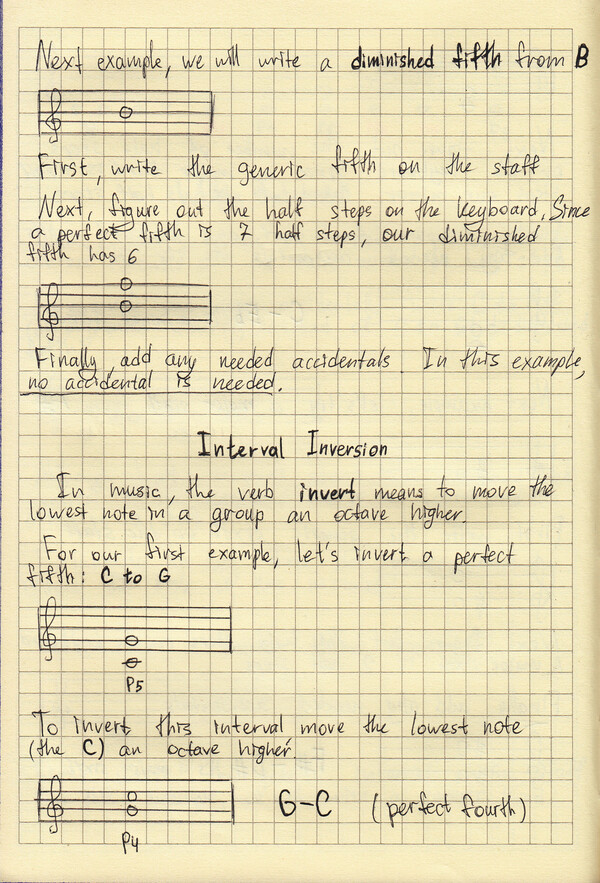 Next example, we will write a diminished fifth from B
First, write the generic fifth on the staff
Next, figure out the half steps on the keyboard. Since
a perfect fifth is 7 half steps, our diminished
fifth has 6
Finally, add any needed accidentals. In this example,
no accidental is needed.
Interval Inversion
In music, the verb invert means to move the
lowest note in a group an octave higher.
For our first example, let's invert a perfect
fifth: C to G
P5
To invert this interval move the lowest note
(the C) an octave higher.
G-C (perfect fourth)
P4